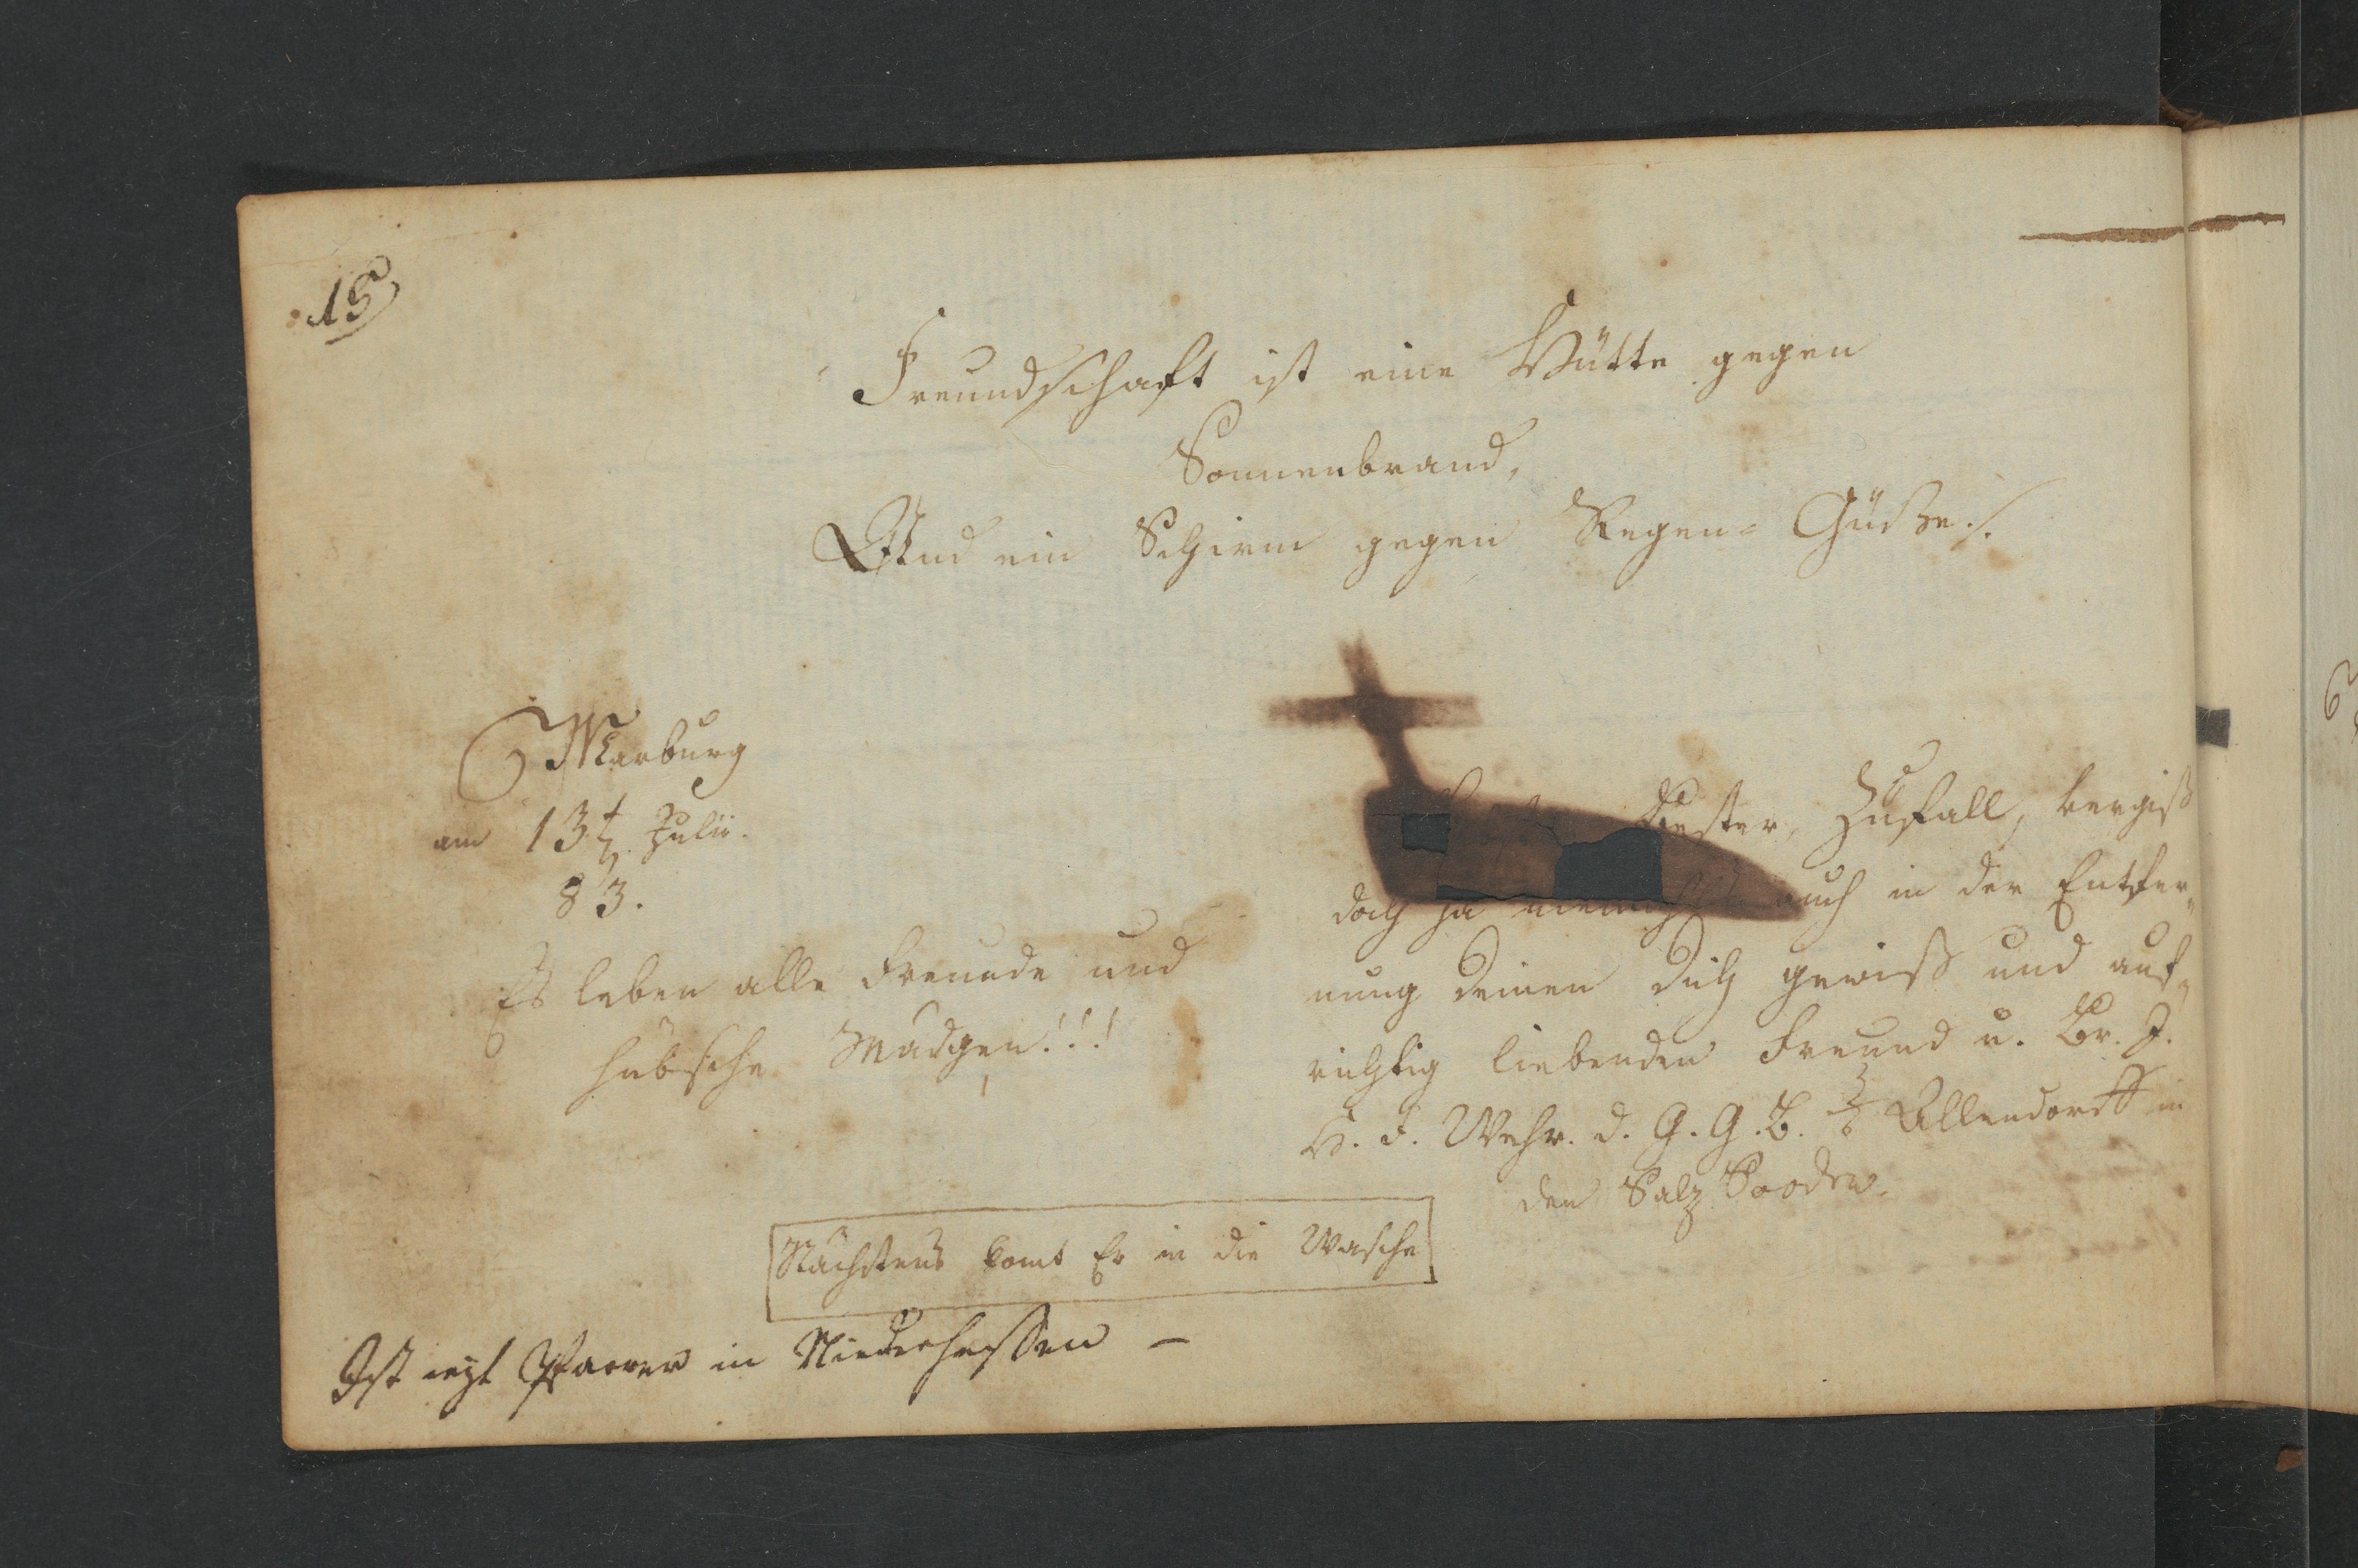 15
Freundschaft ist eine Hütte gegen
Sonnenbrand,
Und ein Schirm gegen Regen= Güße./.
Marburg
am 13t Julii.
83.
Es leben alle Freunde und
hübsche Mädgen!!!
Bester, Zufall, vergiß
doch ja auch in der Entfer„
nung deinen dich gewiß und auf„
richtig liebenden Freund u. Br. J.
H. F. Wehr. d. G. G. B. Allendorff in
den Salz Sooden.
Nächstens komt Er in die Wäsche
Ist iezt Pfarrer in Niederhessen –